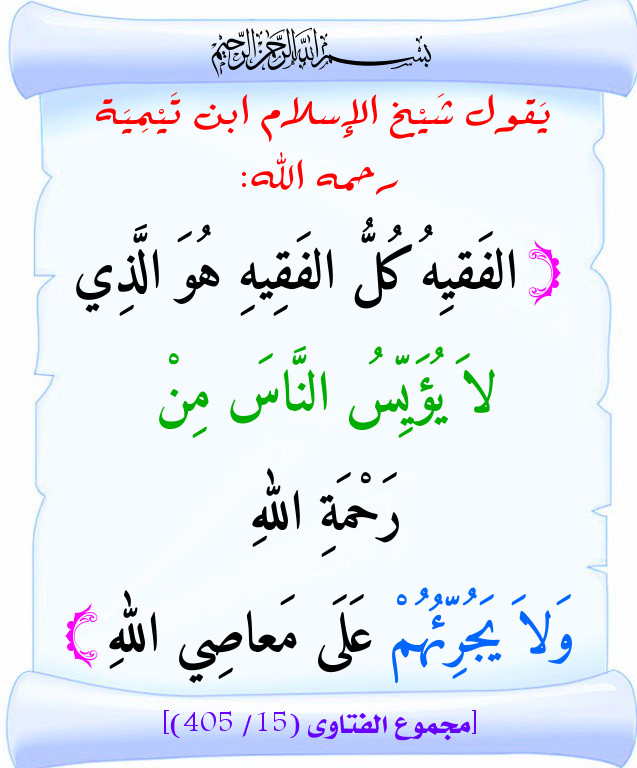 بسم الله الرحمن الرحيم
يَقول شَيْخ الإسلام ابن تَيْمِيَة
رحمه الله:
الفَقيِهُ كُلُّ الفَقِيهِ هُوَ الَّذِي
لاَ يُؤَيِّسُ النَّاسَ مِنْ
رَحْمَةِ اللهِ
وَلاَ يَجُرِّئُهُمْ عَلَى مَعاصِي اللهِ
[مجموع الفتاوى (15/ 405)]